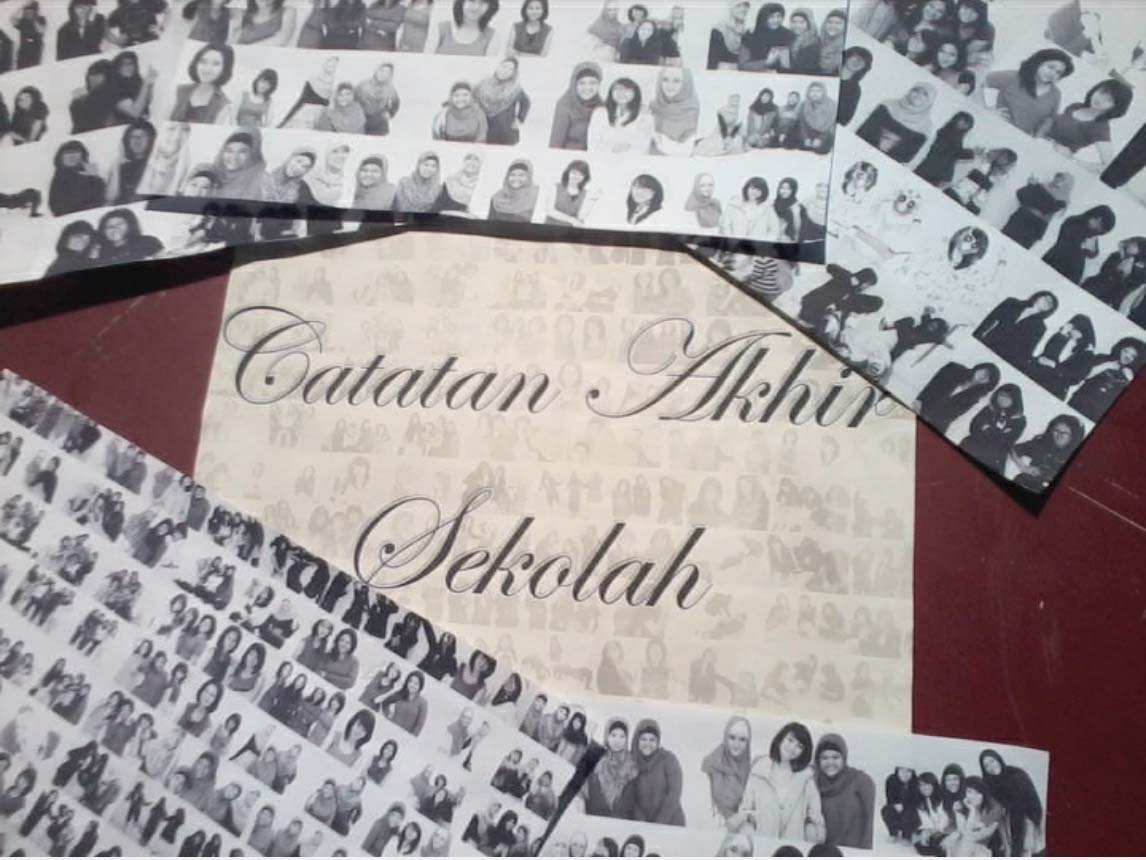 Catatan Akhir
Sekolah